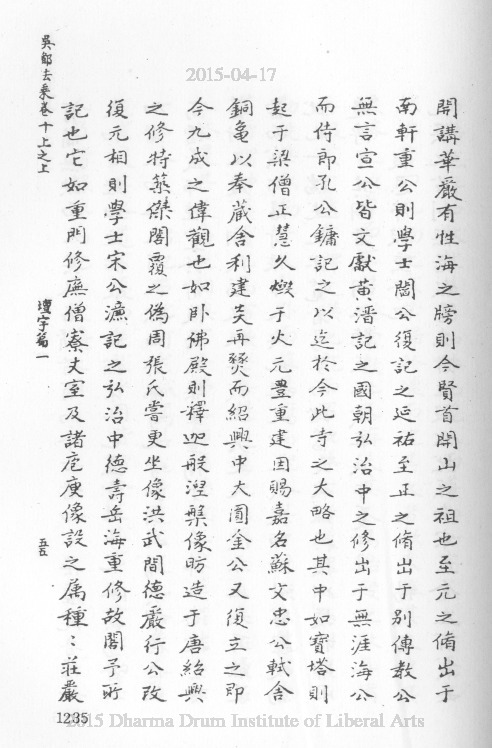 2015-04-17
開講華嚴有性海之牓則今賢首開山之祖也至元之脩出于
南軒重公則學士閻公復記之延祐至正之脩出于別傳教公
無言宣公皆文獻黃溍記之國朝弘治中之修出于無涯海公
而侍郎孔公鏞記之以迄於今此寺之大略也其中如寶塔則
起于梁僧正慧久燬于火元豐重建因賜嘉名蘇文忠公軾舍
銅龜以奉藏舍利建炎再燹而紹興中大圓金公又復立之即
今九成之偉觀也如卧佛殿則釋迦般涅槃像昉造于唐紹興
之修特築傑閣覆之偽周張氏嘗更坐像洪武間德嚴行公改
復元相則學士宋公濂記之弘治中德壽岳海重修故閣予所
記也它如重門修廡僧寮丈室及諸庖庾像設之屬種〻莊嚴
吳都法乘卷十上之上
壇宇篇一
五五
1235
2015 Dharma Drum Institute of Liberal Arts